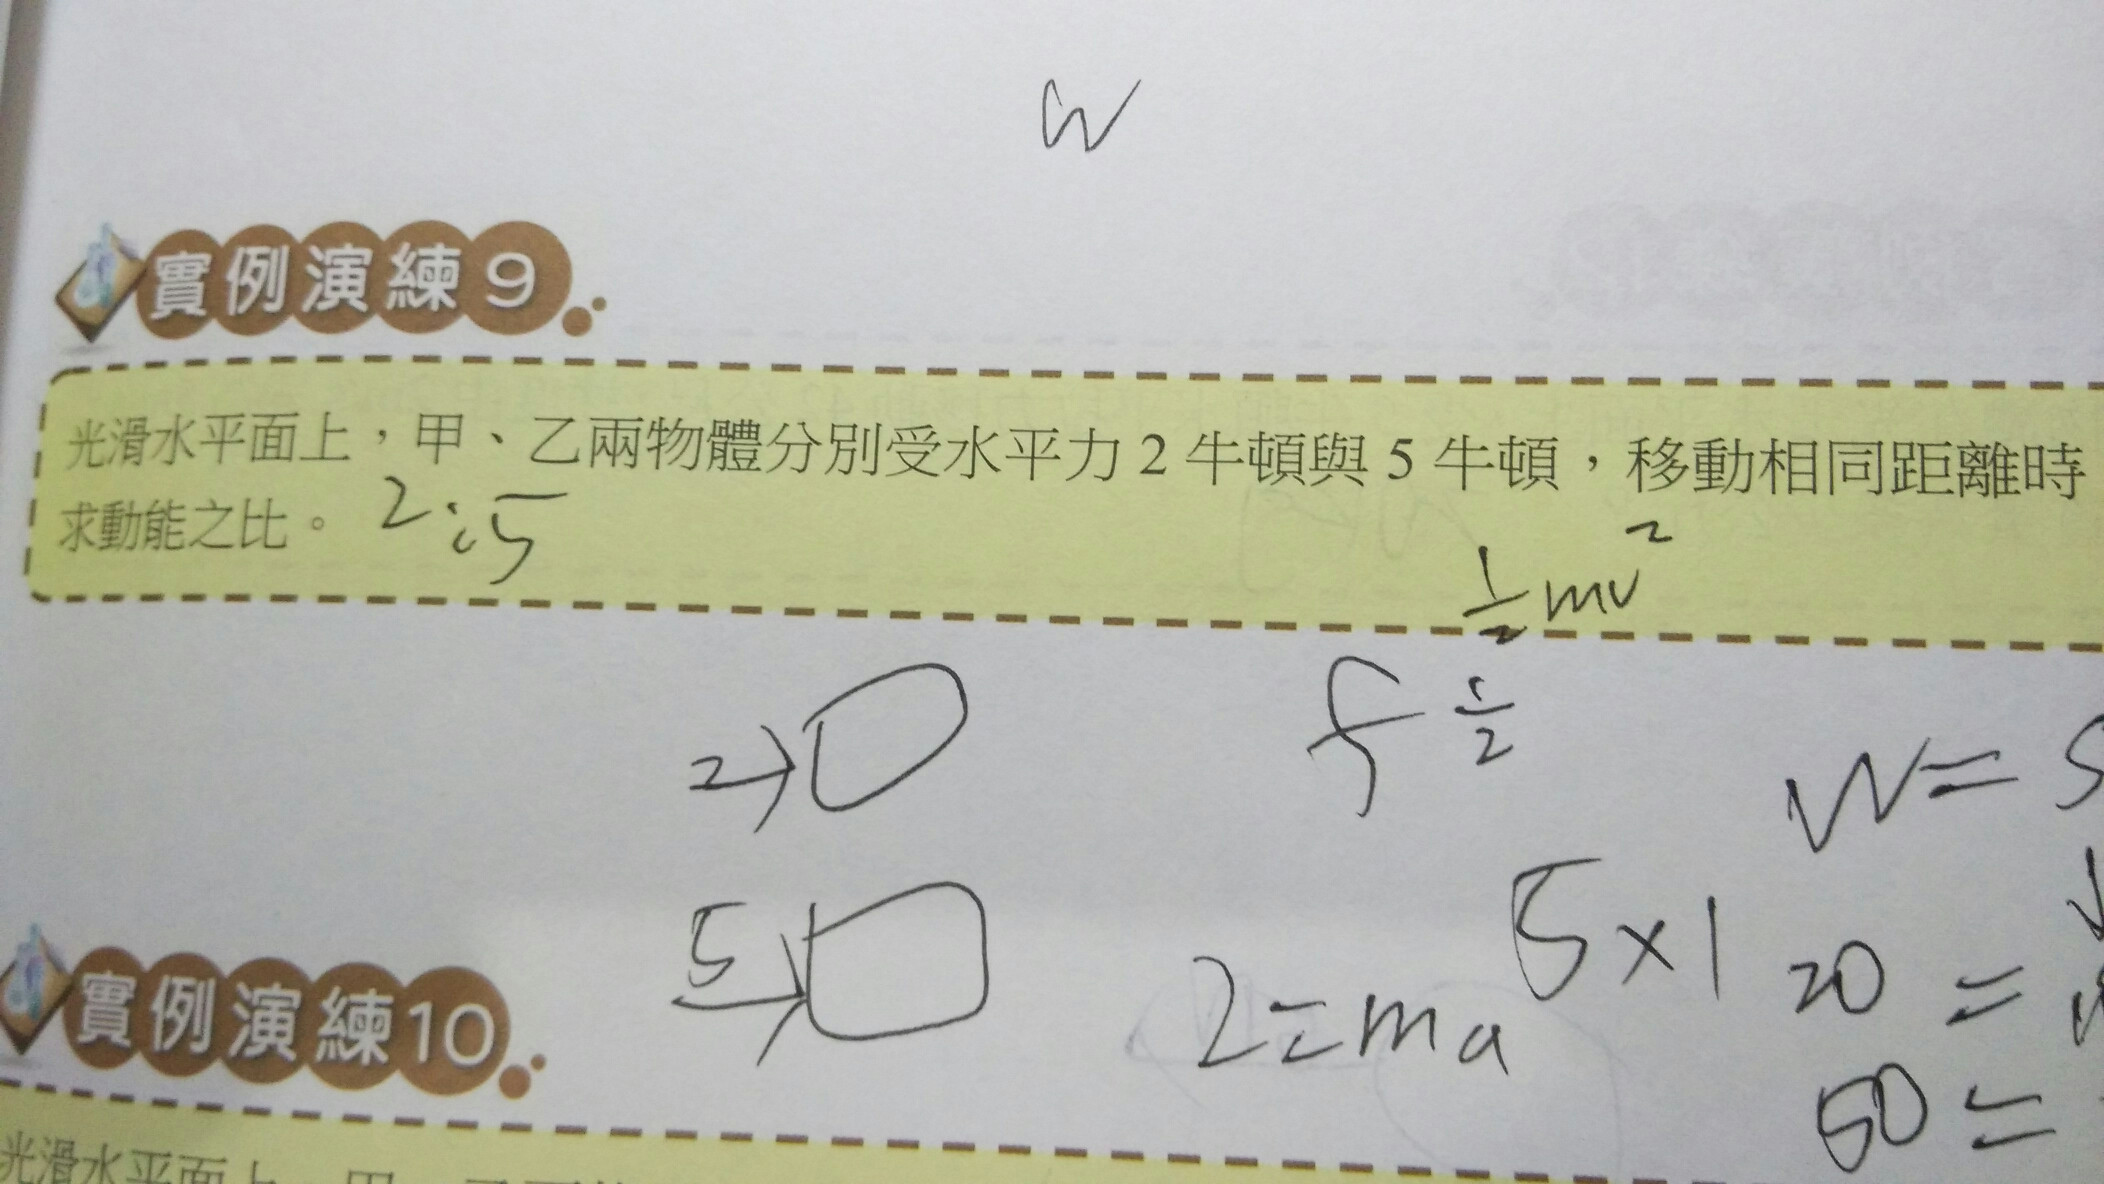 W
實例演練9
光滑水平面上，甲、乙兩物體分別受水平力 2 牛頓與 5 牛頓，移動相同距離時
求動能之比。 2:5
1/2 mv²
2→
1/2
W=S
5→
5×1
20 =
2=ma
50 =
實例演練10
光滑水平面上